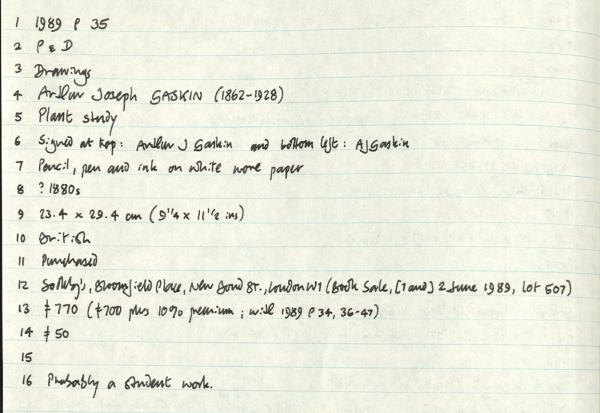 1 1989 P 35
2 P & D
3 Drawings
4 Arthur Joseph GASKIN (1862-1928)
5 Plant study
6 Signed at top: Arthur J Gaskin and bottom left: AJGaskin
7 Pencil, pen and ink on white wove paper
8 ? 1880s
9 23.4 x 29.4 cm (9 1/4 x 11 1/2 ins)
10 British
11 Purchased
12 Sotheby's, Bloomfield Place, New Bond St., London W1 (Book Sale, [1 and] 2 June 1989, lot 507)
13 £770 (£700 plus 10% premium; with 1989 P 34, 36-47)
14 £50
15
16 Probably a student work.